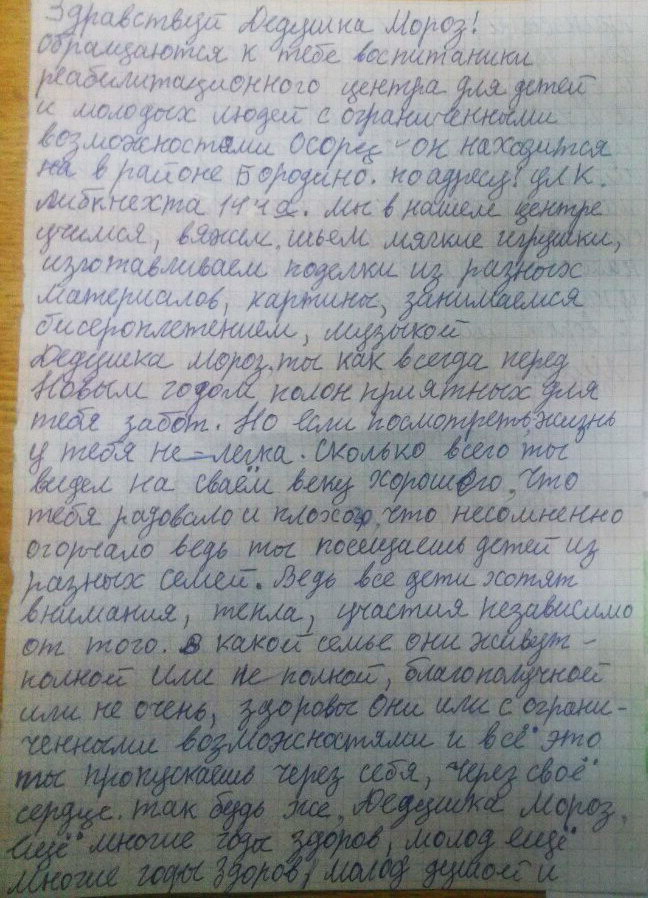 Здравствуй Дедушка Мороз!
Обращаются к тебе воспитаники
реабилитационного центра для детей
и молодых людей с ограниченными
возможностями Осорец - он находится
на в районе Бородино. по адресу: ул К.
Либкнехта 144 а. Мы в нашем центре
учимся, вяжем, шьем мягкие игрушки,
изготавливаем поделки из разных
материалов, картины, занимаемся
бисероплетением, музыкой
Дедушка Мороз. ты как всегда перед
Новым годом полон приятных для
тебя забот. Но если посмотреть, жизнь
у тебя не-легка. Сколько всего ты
видел на сваём веку хорошого, что
тебя радовало и плохого, что несомненно
огорчало ведь ты посещаешь детей из
разных семей. Ведь все дети хотят
внимания, тепла, участия независимо
от того. в какой семье они живут -
полной или не полной, благополучной
или не очень, здоровы они или с ограни-
ченными возможностями и всё это
ты пропускаешь через себя, через своё
сердце. так будь же, Дедушка Мороз,
ещё многие годы здоров, молод ещё
многие годы здоров, молод душой и